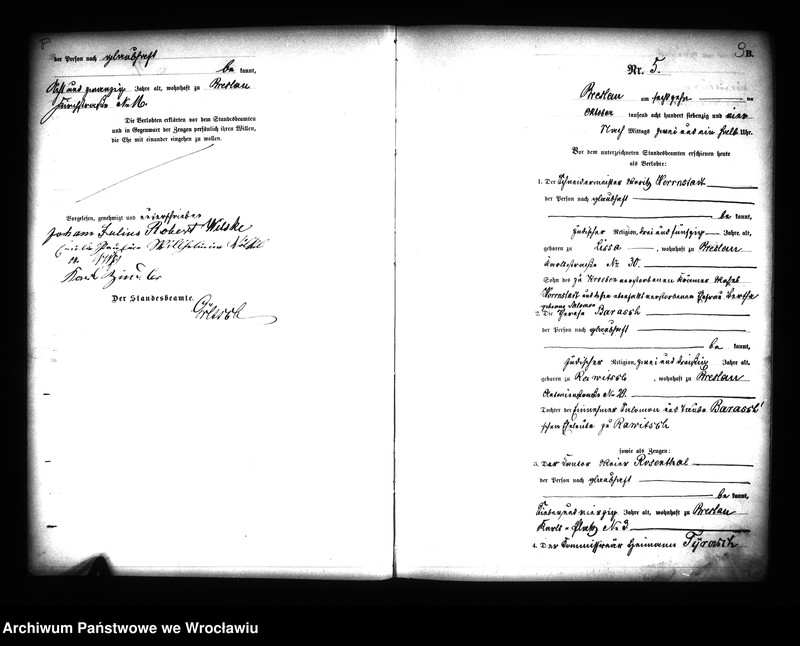 der Person nach glaubhaft
be kannt,
Acht und zwanzig Jahre alt, wohnhaft zu Breslau
No 16.
Die Verlobten erklärten vor dem Standesbeamten
und in Gegenwart der Zeugen persönlich ihren Willen,
die Ehe mit einander eingehen zu wollen.
Vorgelesen, genehmigt und unterschrieben
Johann Julius Robert Wilske
Wilhelmine
Karl
Der Standesbeamte.
3
B.
Nr. 5.
Breslau am sechszehn ten
Oktober tausend acht hundert siebenzig und vier
Nach Mittags zwei und ein halb Uhr.
Vor dem unterzeichneten Standesbeamten erschienen heute
als Verlobte:
1. Der Schneidermeister Moritz Herrnstadt
der Person nach glaubhaft
be kannt,
jüdischer Religion, drei und fünfzig Jahre alt,
geboren zu Lissa, wohnhaft zu Breslau
No 30.
Sohn des zu verstorbenen
Herrnstadt und dessen ebenfalls verstorbenen Ehefrau Bertha
geborene Salomon
2. Die Therese Barasch
der Person nach glaubhaft
be kannt,
jüdischer Religion, zwei und dreißig Jahre alt,
geboren zu Rawitsch, wohnhaft zu Breslau
Antonienstraße No 29.
Tochter der Einnehmer Salomon und Barasch'
schen Eheleute zu Rawitsch
sowie als Zeugen:
3. Der Kantor Meier Rosenthal
der Person nach glaubhaft
be kannt,
Sieben und vierzig Jahre alt, wohnhaft zu Breslau
Karls-Platz No 3.
4. Der Commissionär Heimann
Archiwum Państwowe we Wrocławiu